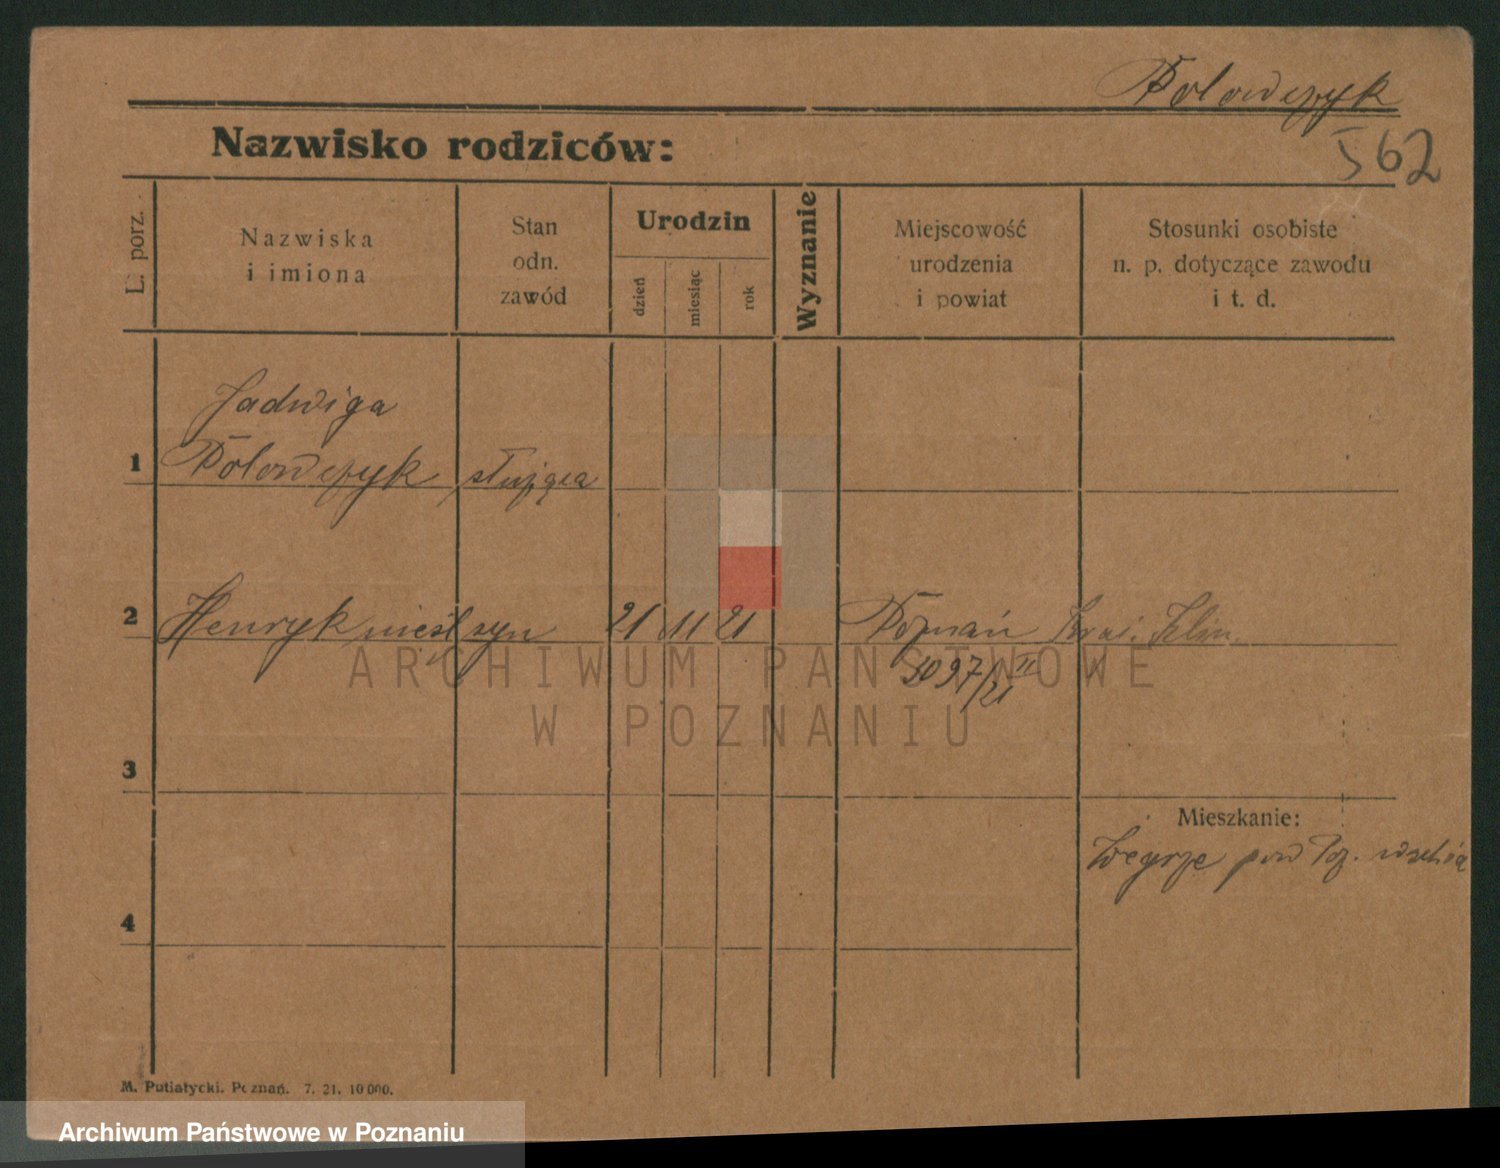 Połowczyk
562
Nazwisko rodziców:
L. porz.
Nazwiska
i imiona
Stan
odn.
zawód
Urodzin
dzień
miesiąc
rok
Wyznanie
Miejscowość
urodzenia
i powiat
Stosunki osobiste
n. p. dotyczące zawodu
i t. d.
1
Jadwiga
Połowczyk służąca
2
Henryk nieśl syn 21 11 21 Poznań
1097/21 II
ARCHIWUM PAŃSTWOWE
W POZNANIU
3
Mieszkanie:
pow Poz.
4
M. Putiatycki. Poznań. 7. 21. 10 000.
Archiwum Państwowe w Poznaniu